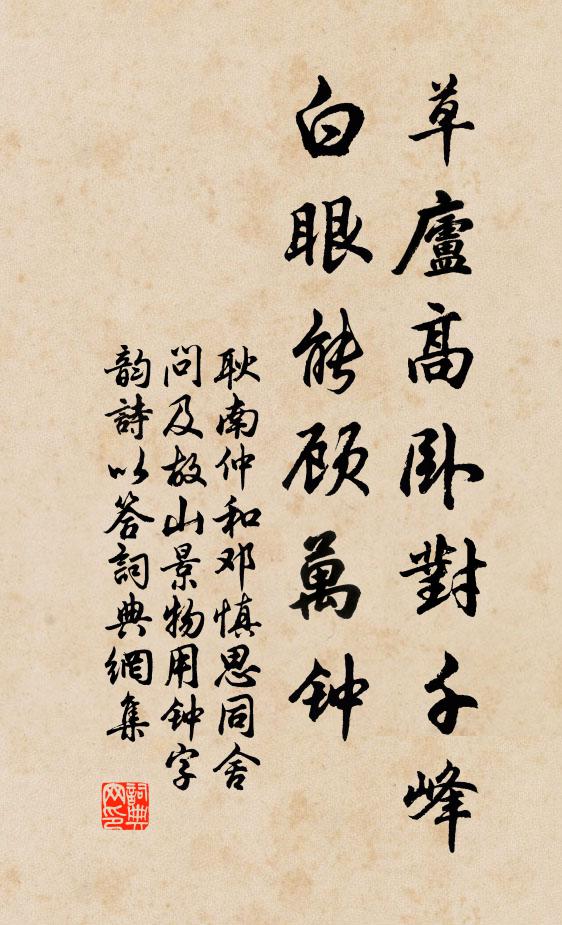 草廬高卧對千峰
白眼能顾萬钟
耿南仲和邓慎思同舍
問及故山景物用钟字
韵詩以答詞典網集
詞典网印